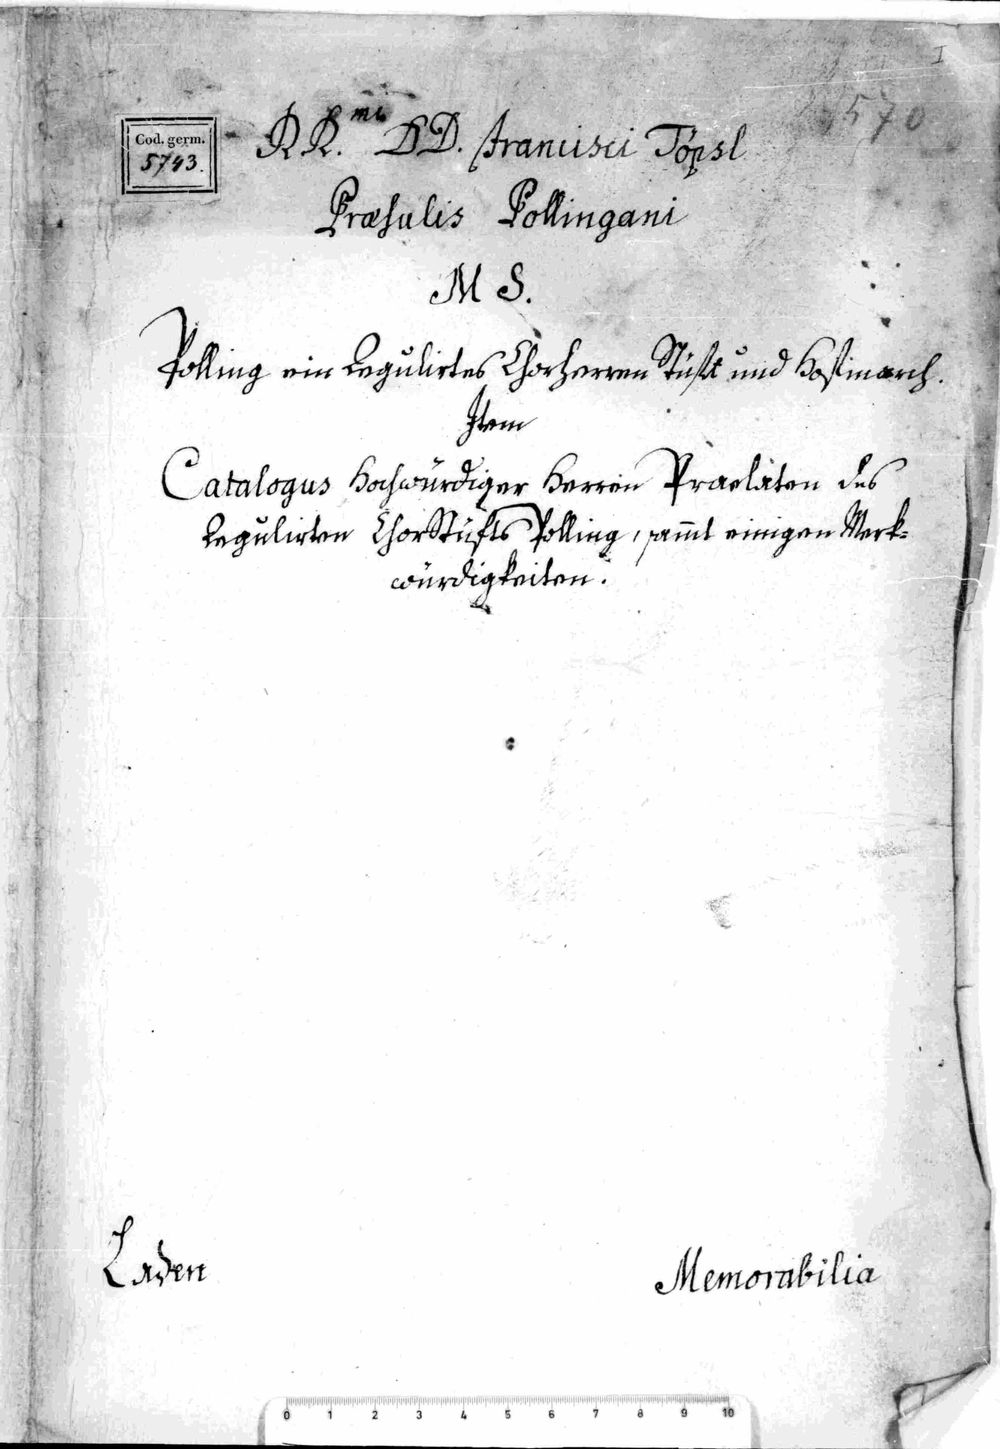 I
570
Cod. germ.
5743.
RR.mi DD. Francisci Töpsl
Præsulis Pollingani
M S.
Polling ein Regulirtes Chorherren Stüfft und Hofmarch.
Item
Catalogus Hochwürdiger Herren Praelaten des
Regulirten ChorStüfts Polling, sam̃t einigen Merk=
würdigkeiten.
Laden
Memorabilia
0 1 2 3 4 5 6 7 8 9 10